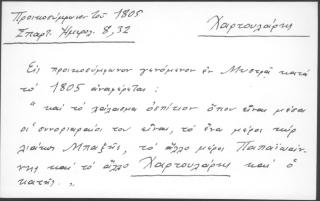 Προικοσύμφωνον τοῦ 1805
Σπαρτ. Ἡμερολ. 8, 32
Χαρτουλάρης
Εἰς προικοσύμφωνον γενόμενον ἐν Μυστρᾷ κατὰ
τὸ 1805 ἀναφέρεται:
"καὶ τὸ χάλασμα ὁσπίτιον ὅπου εἶναι μέσα
οἱ συνοριαραῖοι του εἶναι, τὸ ἕνα μέρος κὺρ
Μπαξῆς, τὸ ἄλλο μέρος Παπαϊωάν-
νης καὶ τὸ ἄλλο Χαρτουλάρης καὶ ὁ
κατῆς."